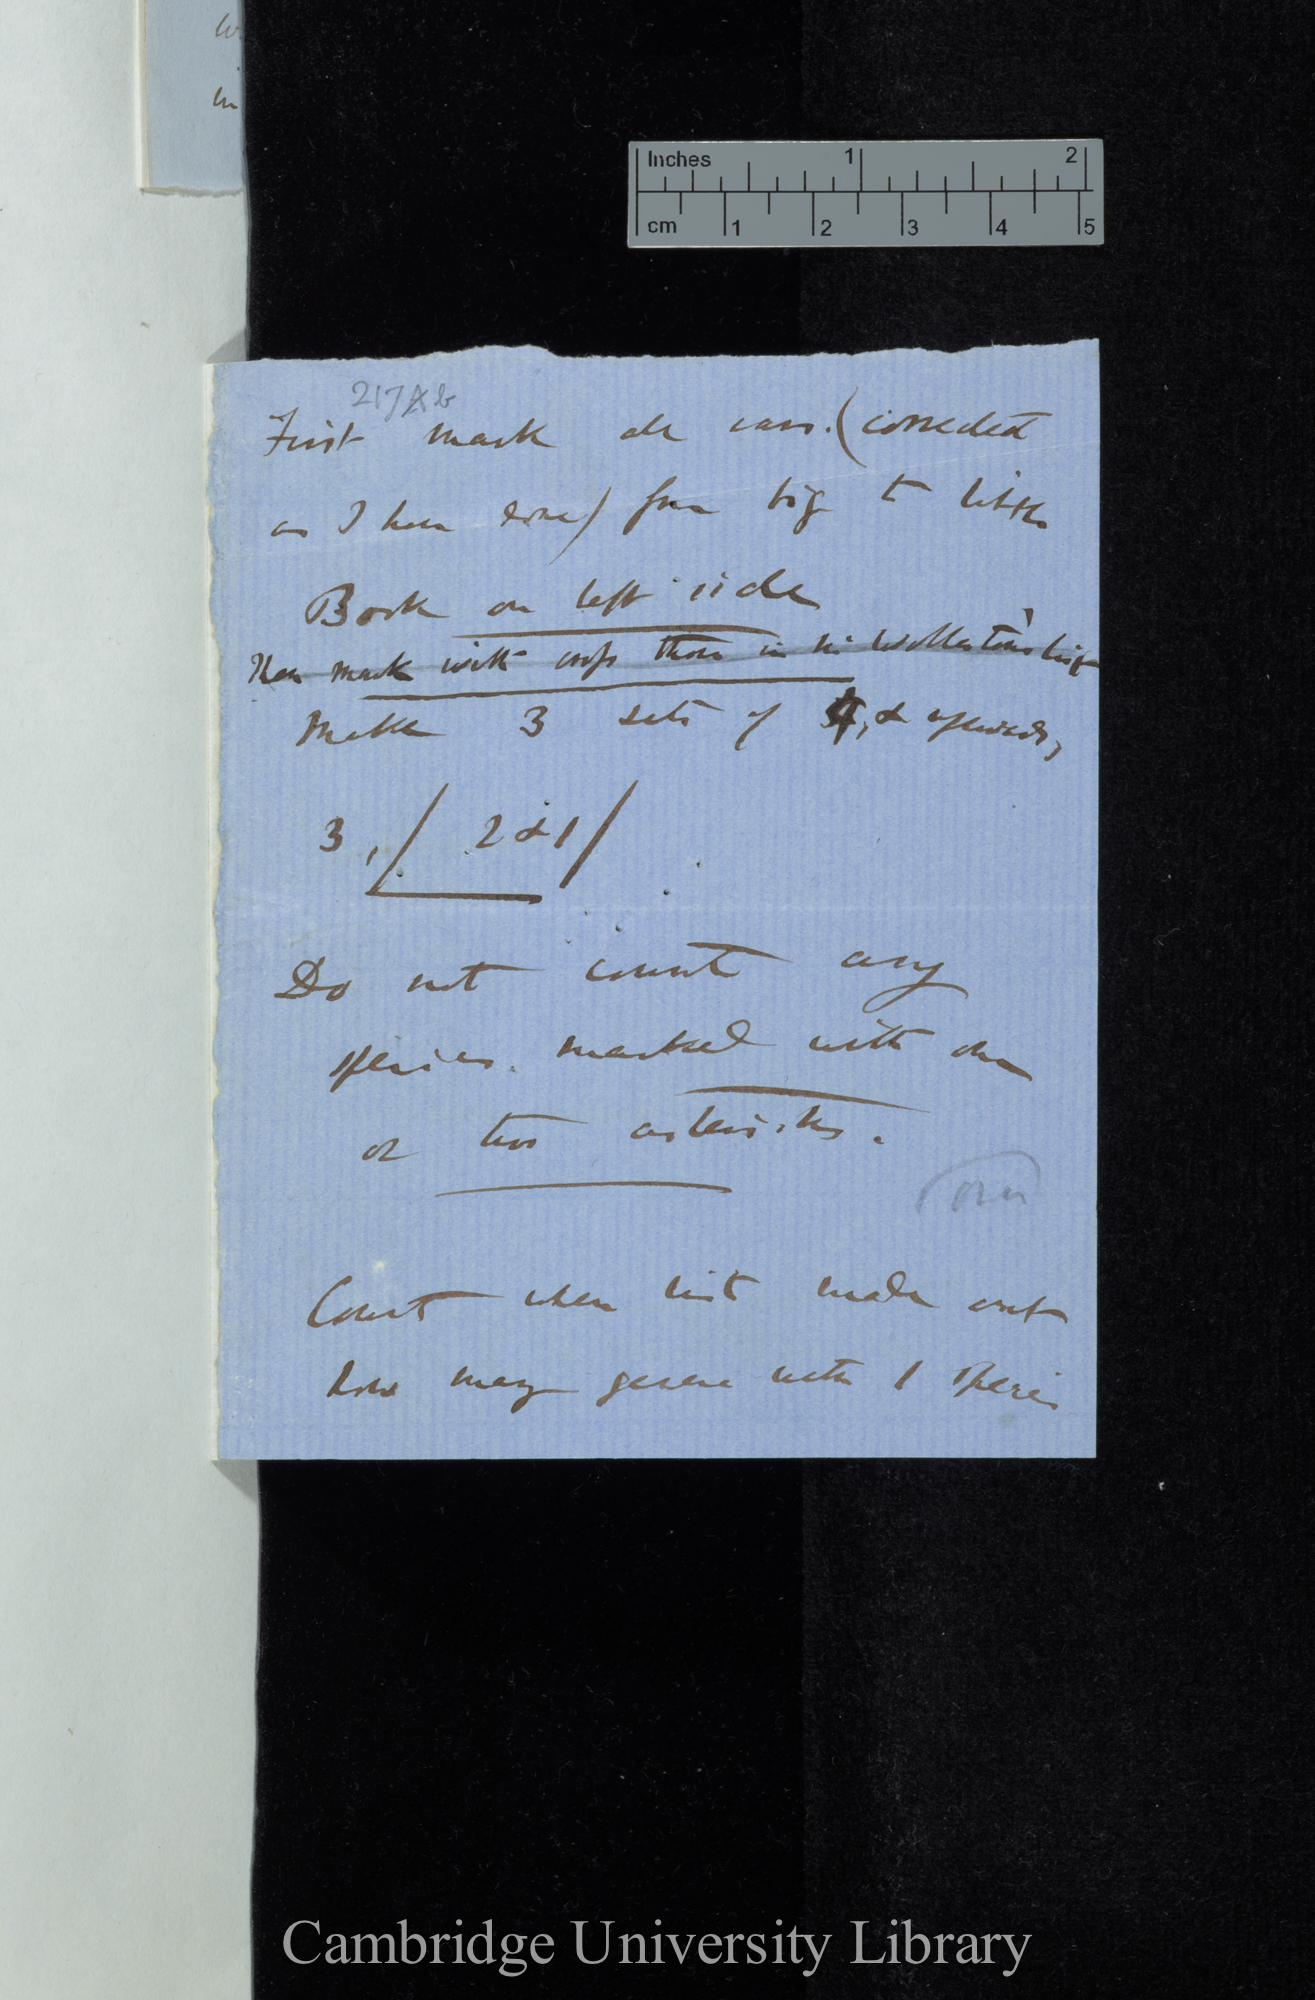 Inches 1 2
cm 1 2 3 4 5
217Ab
First mark all vars. (corrected
as I have done) from big to little
Book on left side
Then mark with cross those in in Wollaston's
Make 3 sets of 4, & upwards,
3, / 2 & 1 /
Do not count any
species marked with one
or two asterisks.
(over
Count when list made out
how many genera with 1 species
Cambridge University Library